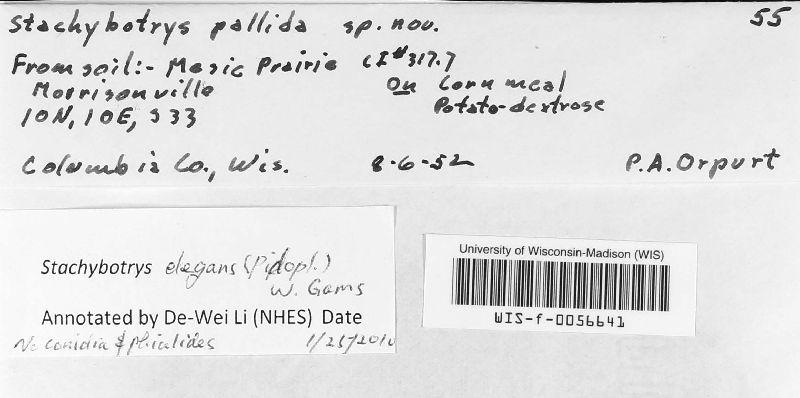 Stachybotrys pallida sp. nov. 55
From soil:- Mesic Prairie CI#317.7
Morrisonville On Corn meal
10N, 10E, S33 Potato-dextrose
Columbia Co., Wis. 8-6-52 P.A. Orpurt
Stachybotrys elegans (Pidopl.)
W. Gams
Annotated by De-Wei Li (NHES) Date
No conidia & phialides 1/25/2010
University of Wisconsin-Madison (WIS)
WIS-f-0056641